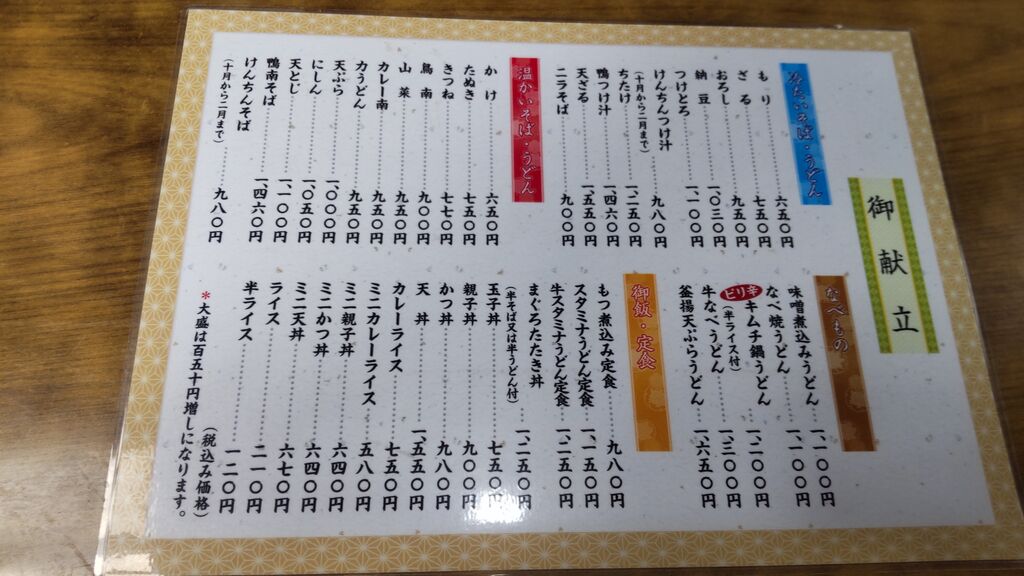 御献立
冷たいそば・うどん
もり 六五〇円
ざる 七五〇円
おろし 九五〇円
納豆 一、〇三〇円
つけとろ 一、一〇〇円
けんちんつけ汁 九八〇円
(十月から二月まで)
ちたけ 一、二五〇円
鴨つけ汁 一、四六〇円
天ざる 一、五五〇円
ニラそば 九〇〇円
温かいそば・うどん
かけ 六五〇円
たぬき 七五〇円
きつね 七七〇円
鳥南 九〇〇円
山菜 九五〇円
カレー南 九五〇円
力うどん 九五〇円
天ぷら 一、〇〇〇円
にしん 一、〇五〇円
天とじ 一、一〇〇円
鴨南そば 一、四六〇円
けんちんそば 九八〇円
(十月から二月まで)
なべもの
味噌煮込みうどん 一、一〇〇円
なべ焼うどん 一、一〇〇円
ピリ辛 キムチ鍋うどん 一、二〇〇円
(半ライス付)
牛なべうどん 一、三〇〇円
釜揚天ぷらうどん 一、六五〇円
御飯・定食
もつ煮込み定食 九八〇円
スタミナうどん定食 一、一五〇円
牛スタミナうどん定食 一、二五〇円
まぐろたたき丼 一、二五〇円
(半そば又は半うどん付)
玉子丼 七五〇円
親子丼 九〇〇円
かつ丼 九八〇円
天丼 一、五五〇円
カレーライス 七五〇円
ミニカレーライス 五八〇円
ミニ親子丼 六四〇円
ミニかつ丼 六四〇円
ミニ天丼 六七〇円
ライス 二一〇円
半ライス 一二〇円
(税込み価格)
*大盛は百五十円増しになります。